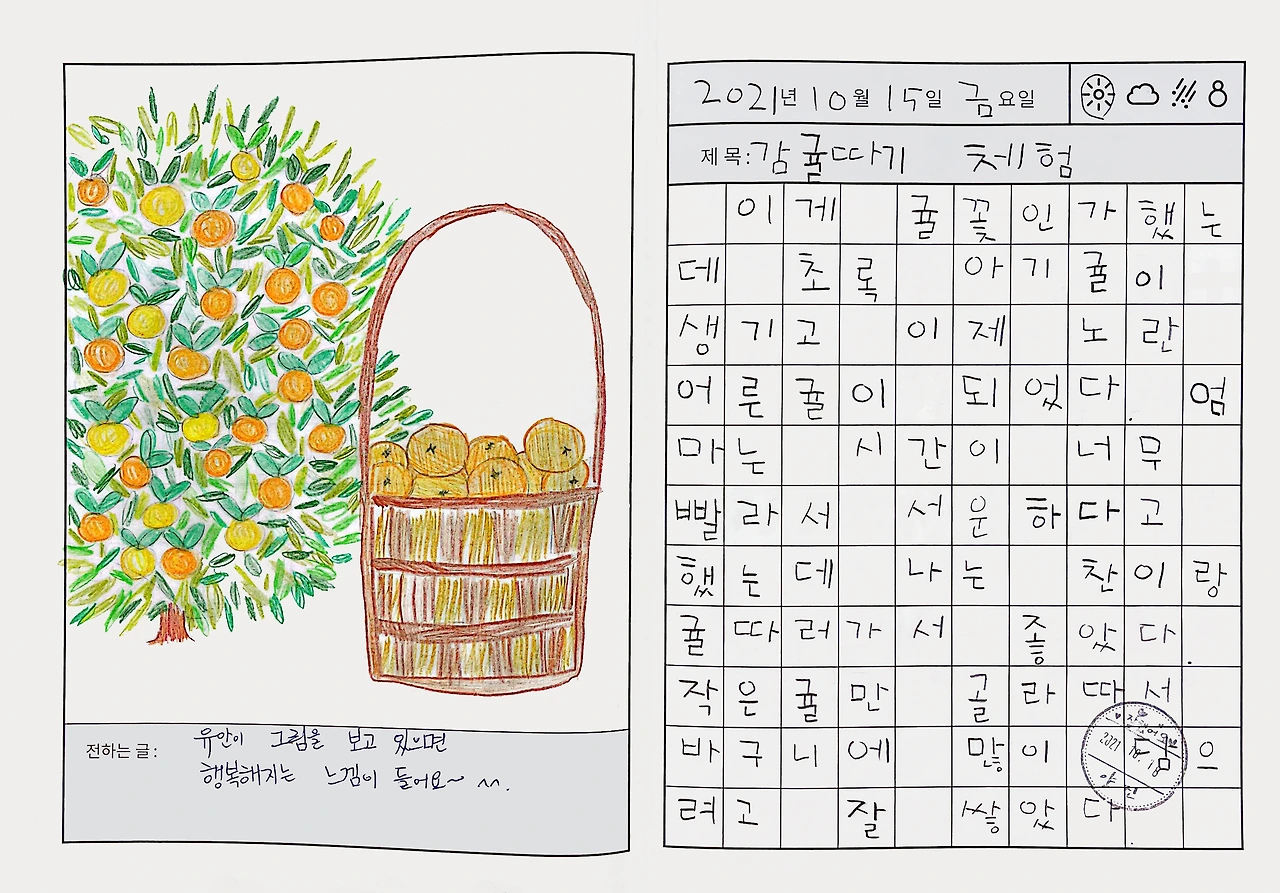 전하는 글: 유안이 그림을 보고 있으면
행복해지는 느낌이 들어요~ ^^.
2021년 10월 15일 금요일
제목: 감귤따기 체험
이게 귤꽃인가했는
데 초록 아기귤이
생기고 이제 노란
어른귤이 되었다. 엄
마는 시간이 너무
빨라서 서운하다고
했는데 나는 찬이랑
귤따러가서 좋았다.
작은귤만 골라따서
바구니에 많이 담으
려고 잘 쌓았다.
2021. 10. 18